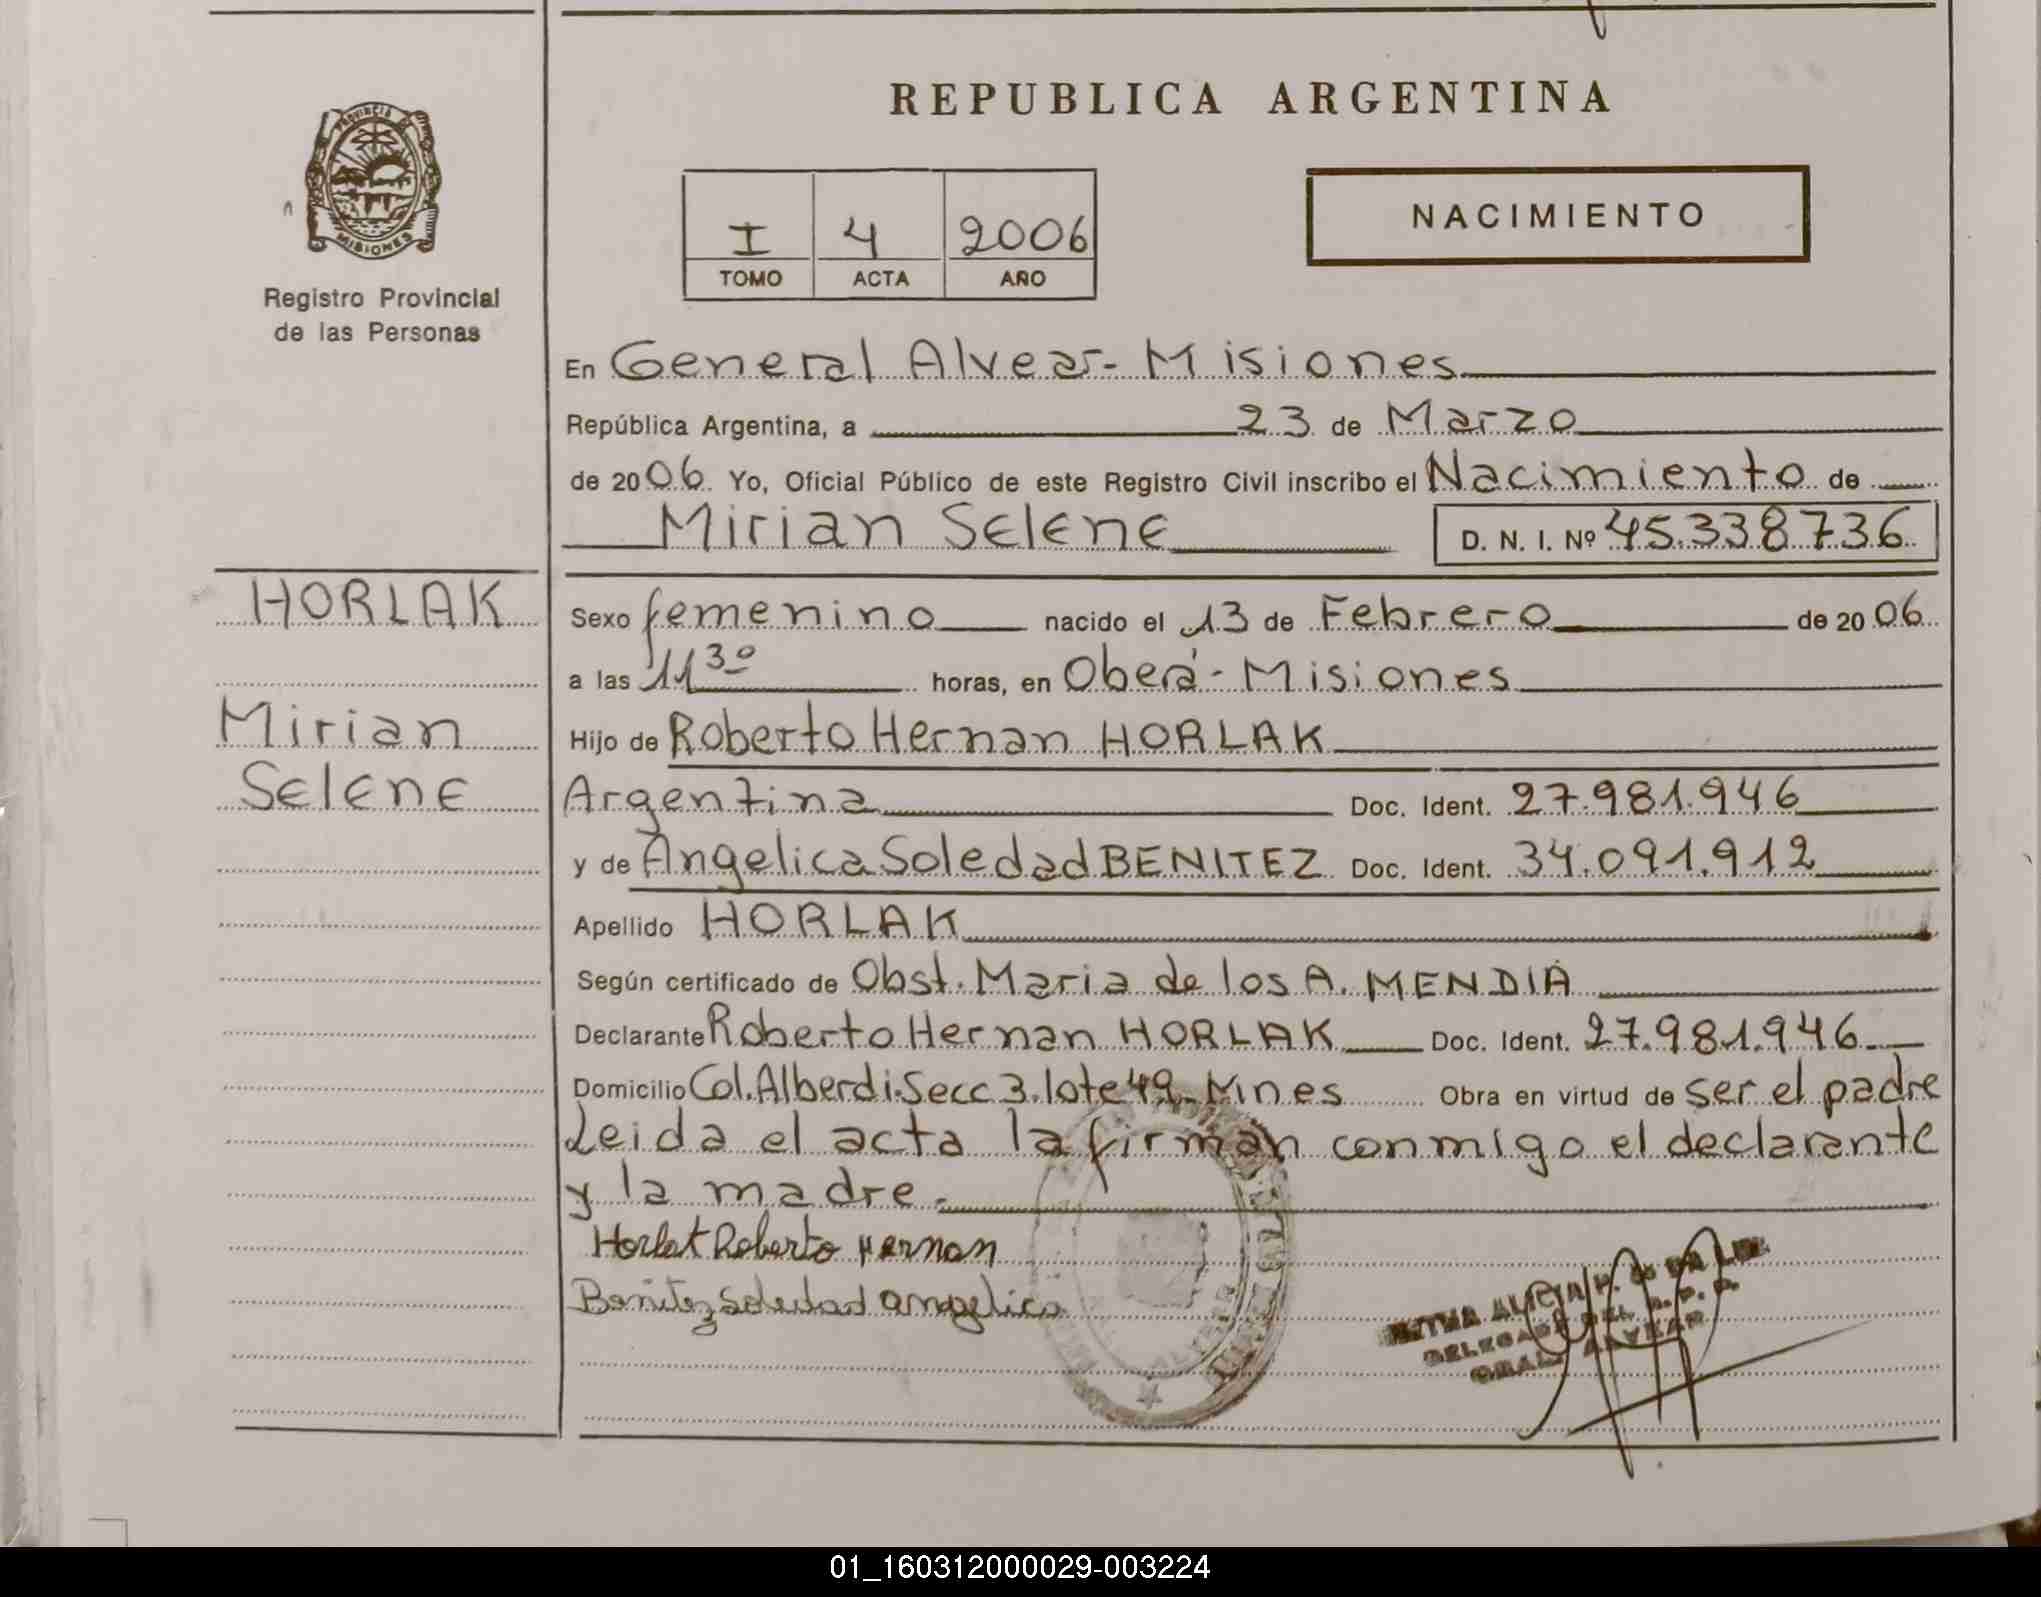 REPUBLICA ARGENTINA
PROVINCIA DE
MISIONES
Registro Provincial
de las Personas
I 4 2006
TOMO ACTA AÑO
NACIMIENTO
En General Alvear - Misiones
República Argentina, a 23 de Marzo
de 2006. Yo, Oficial Público de este Registro Civil inscribo el Nacimiento de
Mirian Selene D. N. I. Nº 45.338.736
HORLAK
Mirian
Selene
Sexo femenino nacido el 13 de Febrero de 2006
a las 11 30 horas, en Oberá - Misiones
Hijo de Roberto Hernan HORLAK
Argentina Doc. Ident. 27.981.946
y de Angelica Soledad BENITEZ Doc. Ident. 34.091.912
Apellido HORLAK
Según certificado de Obst. Maria de los A. MENDIA
Declarante Roberto Hernan HORLAK Doc. Ident. 27.981.946
Domicilio Col. Alberdi. Secc 3. lote 49. Mnes Obra en virtud de ser el padre
Leida el acta la firman conmigo el declarante
y la madre.
Horlak Roberto Hernan
Benitez Soledad Angelica
ALICIA
DELEGADA DEL R. P. P.
GRAL. ALVEAR
01_160312000029-003224